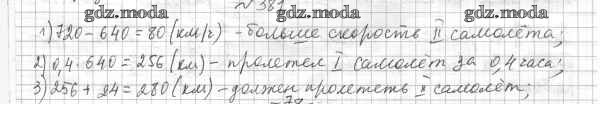 gdz.moda № 381 gdz.moda
1) 720 - 640 = 80 (км/ч) - больше скорость II самолёта;
gdz.moda gdz.moda
2) 0,4 · 640 = 256 (км) - пролетел I самолёт за 0,4 часа;
3) 256 + 24 = 280 (км) - должен пролететь II самолёт;